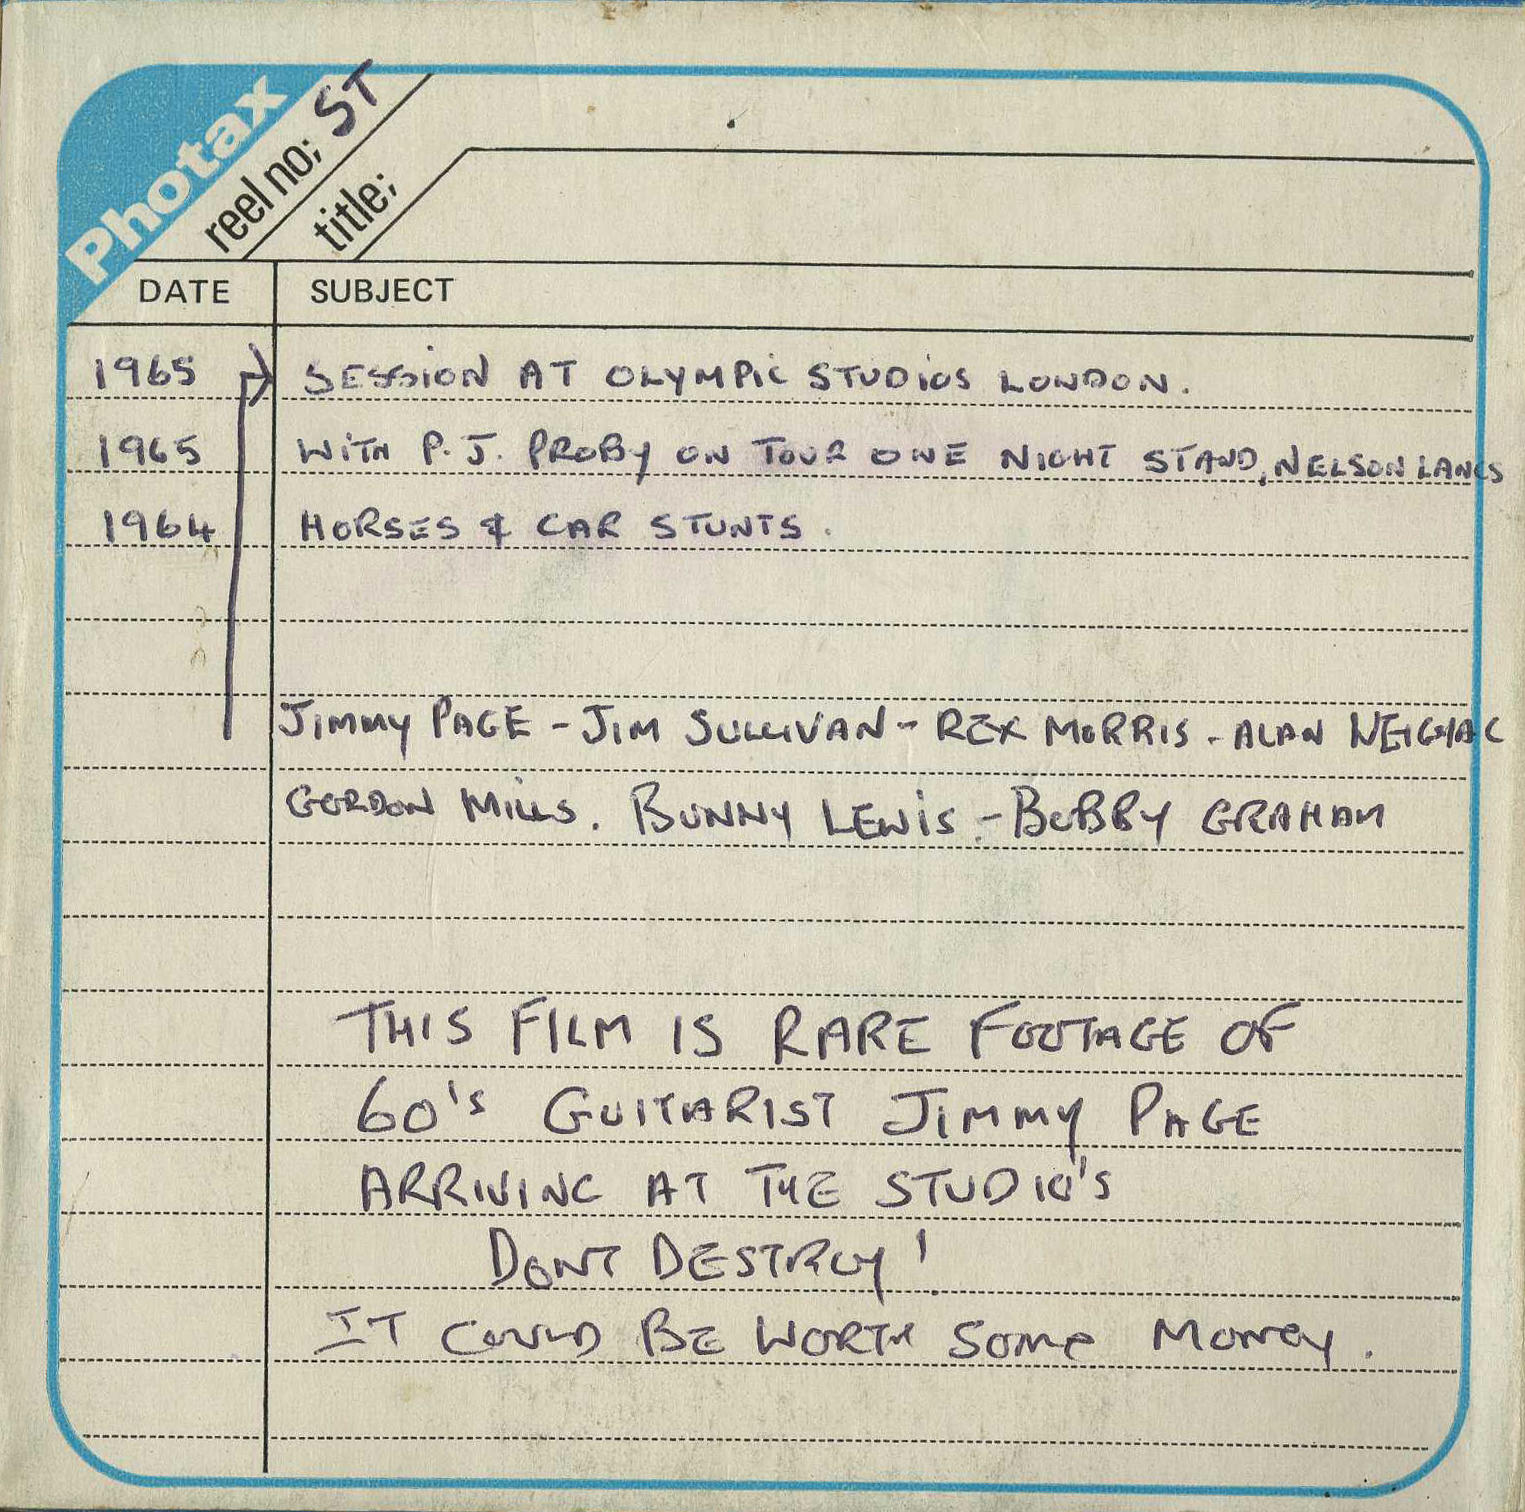 Photax
reel no; ST
title;
DATE SUBJECT
1965 SESSION AT OLYMPIC STUDIOS LONDON.
1965 WITH P.J. PROBY ON TOUR ONE NIGHT STAND, NELSON LANCS
1964 HORSES & CAR STUNTS.
JIMMY PAGE - JIM SULLIVAN - REX MORRIS - ALAN
GORDON MILLS. BUNNY LEWIS - BOBBY GRAHAM
THIS FILM IS RARE FOOTAGE OF
60's GUITARIST JIMMY PAGE
ARRIVING AT THE STUDIO'S
DONT DESTROY!
IT COULD BE WORTH SOME MONEY.